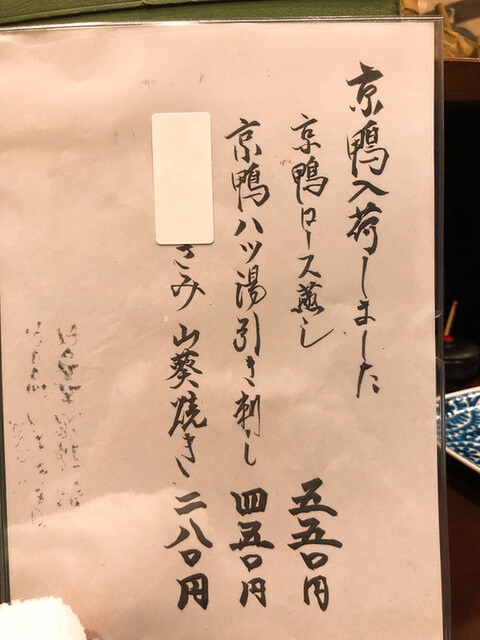 京鴨入荷しました
京鴨ロース蒸し 五五〇円
京鴨ハツ湯引き刺し 四五〇円
さみ 山葵焼き 二八〇円